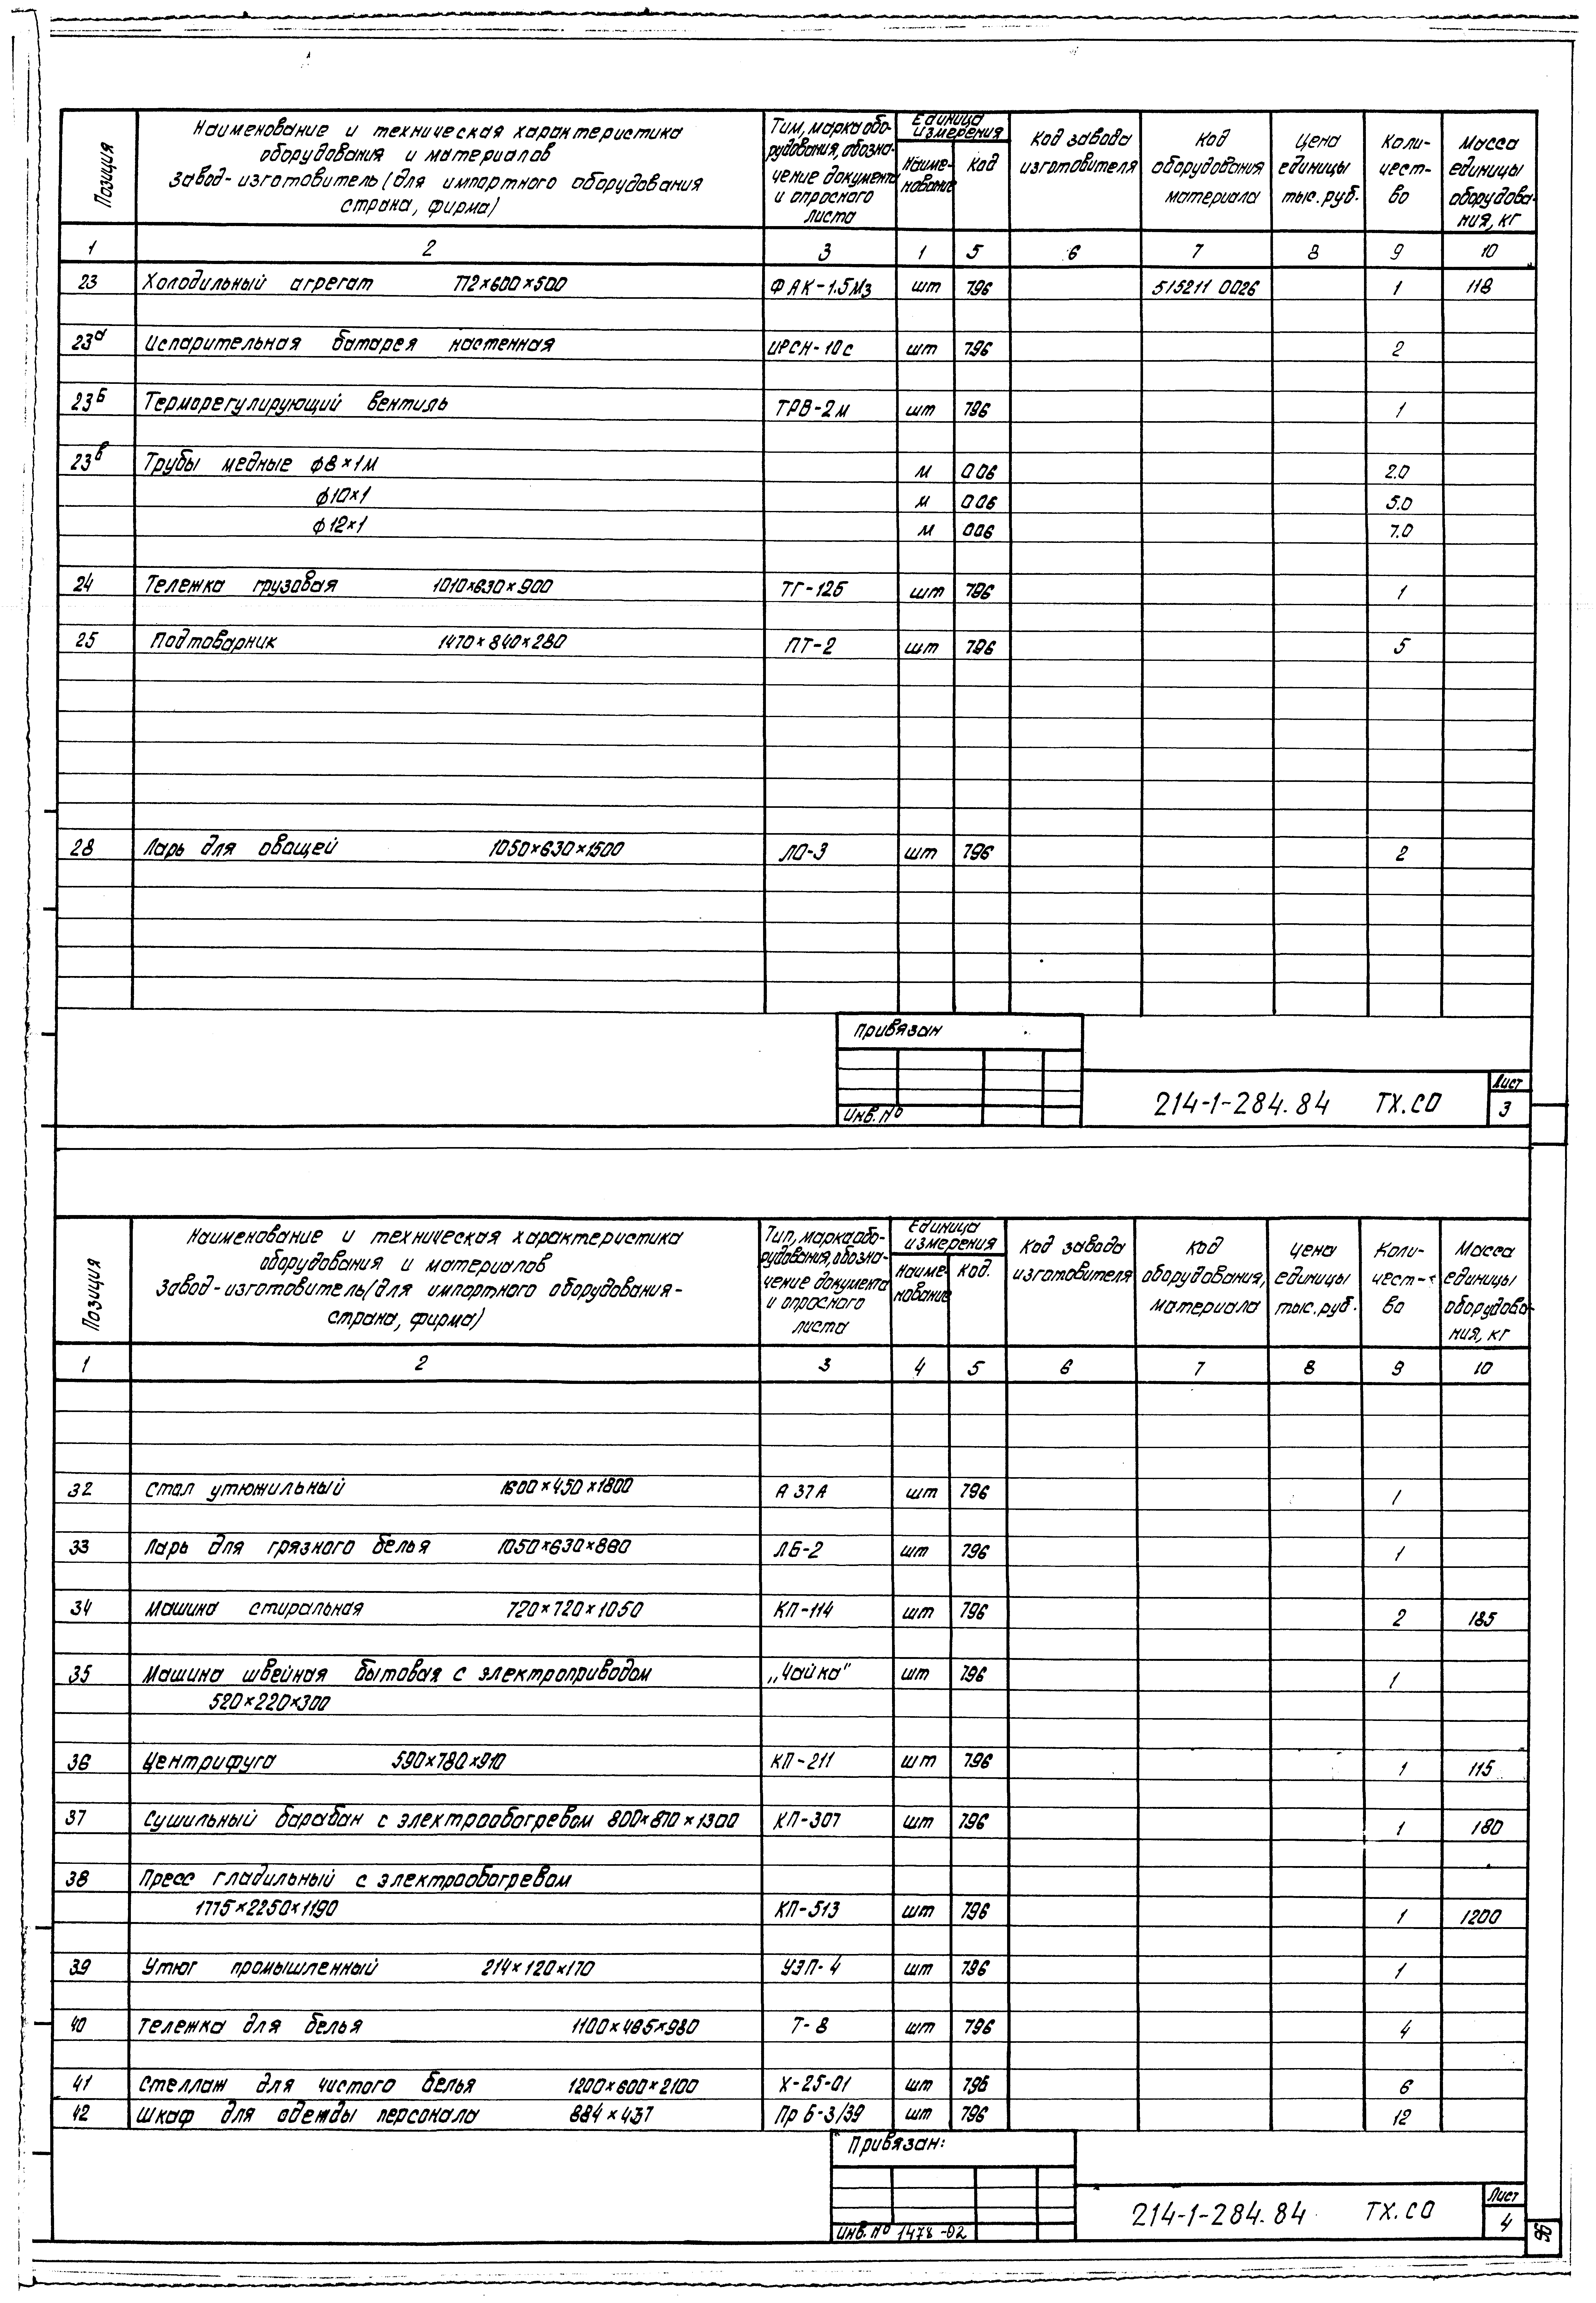 Позиция
Наименование и техническая характеристика
оборудования и материалов
завод-изготовитель (для импортного оборудования
страна, фирма)
Тип, марка обо-
рудования, обозна-
чение документа
и опросного
листа
Единица
измерения
Наиме-
нование
Код
Код завода
изготовителя
Код
оборудования
материала
Цена
единицы
тыс. руб.
Коли-
чест-
во
Масса
единицы
оборудова-
ния, кг
1 2 3 1 5 6 7 8 9 10
23 Холодильный агрегат 772×600×500 ФАК-1.5М3 шт 796 515211 0026 1 118
23а Испарительная батарея настенная ИРСН-10с шт 796 2
23Б Терморегулирующий вентиль ТРВ-2м шт 796 1
23в Трубы медные ф8×1м м 006 2.0
ф10×1 м 006 5.0
ф12×1 м 006 7.0
24 Тележка грузовая 1010×630×900 ТГ-125 шт 796 1
25 Подтоварник 1470×840×280 ПТ-2 шт 796 5
28 Ларь для овощей 1050×630×1500 ЛО-3 шт 796 2
Привязан
Инв. №
214-1-284.84 ТХ.СО
Лист
3
Позиция
Наименование и техническая характеристика
оборудования и материалов
Завод-изготовитель (для импортного оборудования-
страна, фирма)
Тип, марка обо-
рудования, обозна-
чение документа
и опросного
листа
Единица
измерения
Наиме-
нование
Код.
Код завода
изготовителя
Код
оборудования,
материала
Цена
единицы
тыс. руб.
Коли-
чест-
во
Масса
единицы
оборудова-
ния, кг
1 2 3 4 5 6 7 8 9 10
32 Стол утюжильный 1600×450×1800 А 37А шт 796 1
33 Ларь для грязного белья 1050×630×880 ЛБ-2 шт 796 1
34 Машина стиральная 720×720×1050 КП-114 шт 796 2 185
35 Машина швейная бытовая с электроприводом „Чайка" шт 796 1
520×220×300
36 Центрифуга 590×780×910 КП-211 шт 796 1 115
37 Сушильный барабан с электрообогревом 800×870×1300 КП-307 шт 796 1 180
38 Пресс гладильный с электрообогревом
1775×2250×1190 КП-513 шт 796 1 1200
39 Утюг промышленный 214×120×170 УЭП-4 шт 796 1
40 Тележка для белья 1100×485×980 Т-8 шт 796 4
41 Стеллаж для чистого белья 1200×600×2100 Х-25-01 шт 796 6
42 Шкаф для одежды персонала 884×437 Пр Б-3/39 шт 796 12
Привязан:
Инв. № 1478-02
214-1-284.84 ТХ.СО
Лист
4
96